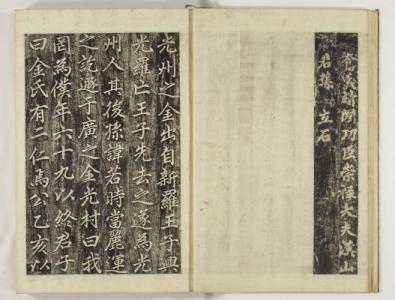 功臣崇
大夫
山
君孫 立石
光州之金出自新羅王子興
光羅亡王子先去之遂為光
州人其後孫諱若時當麗運
之訖遯于廣之金光村曰我
罔為僕年六十九以終君子
曰金氏有二仁焉公乙亥以